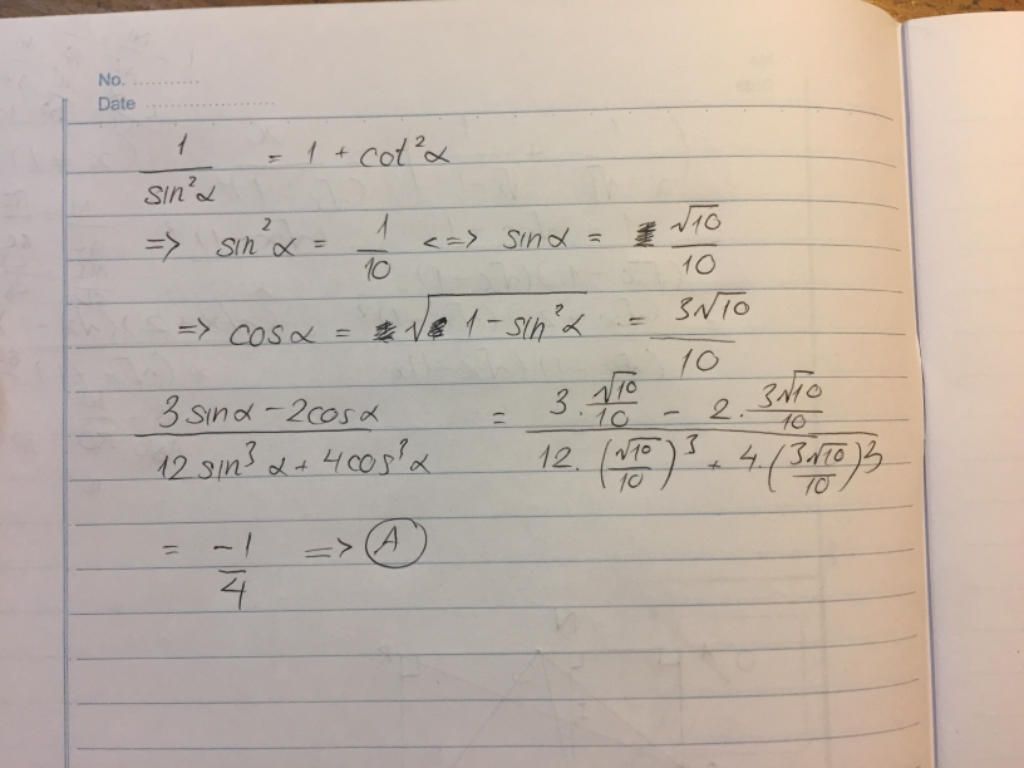 No. ...........
Date ......................
1/sin²α = 1 + cot²α
=> sin²α = 1/10 <=> sinα = √10/10
=> cosα = √(1 - sin²α) = 3√10/10
(3sinα - 2cosα)/(12sin³α + 4cos³α) = (3.√10/10 - 2.3√10/10)/(12.(√10/10)³ + 4.(3√10/10)3
= -1/4 => A